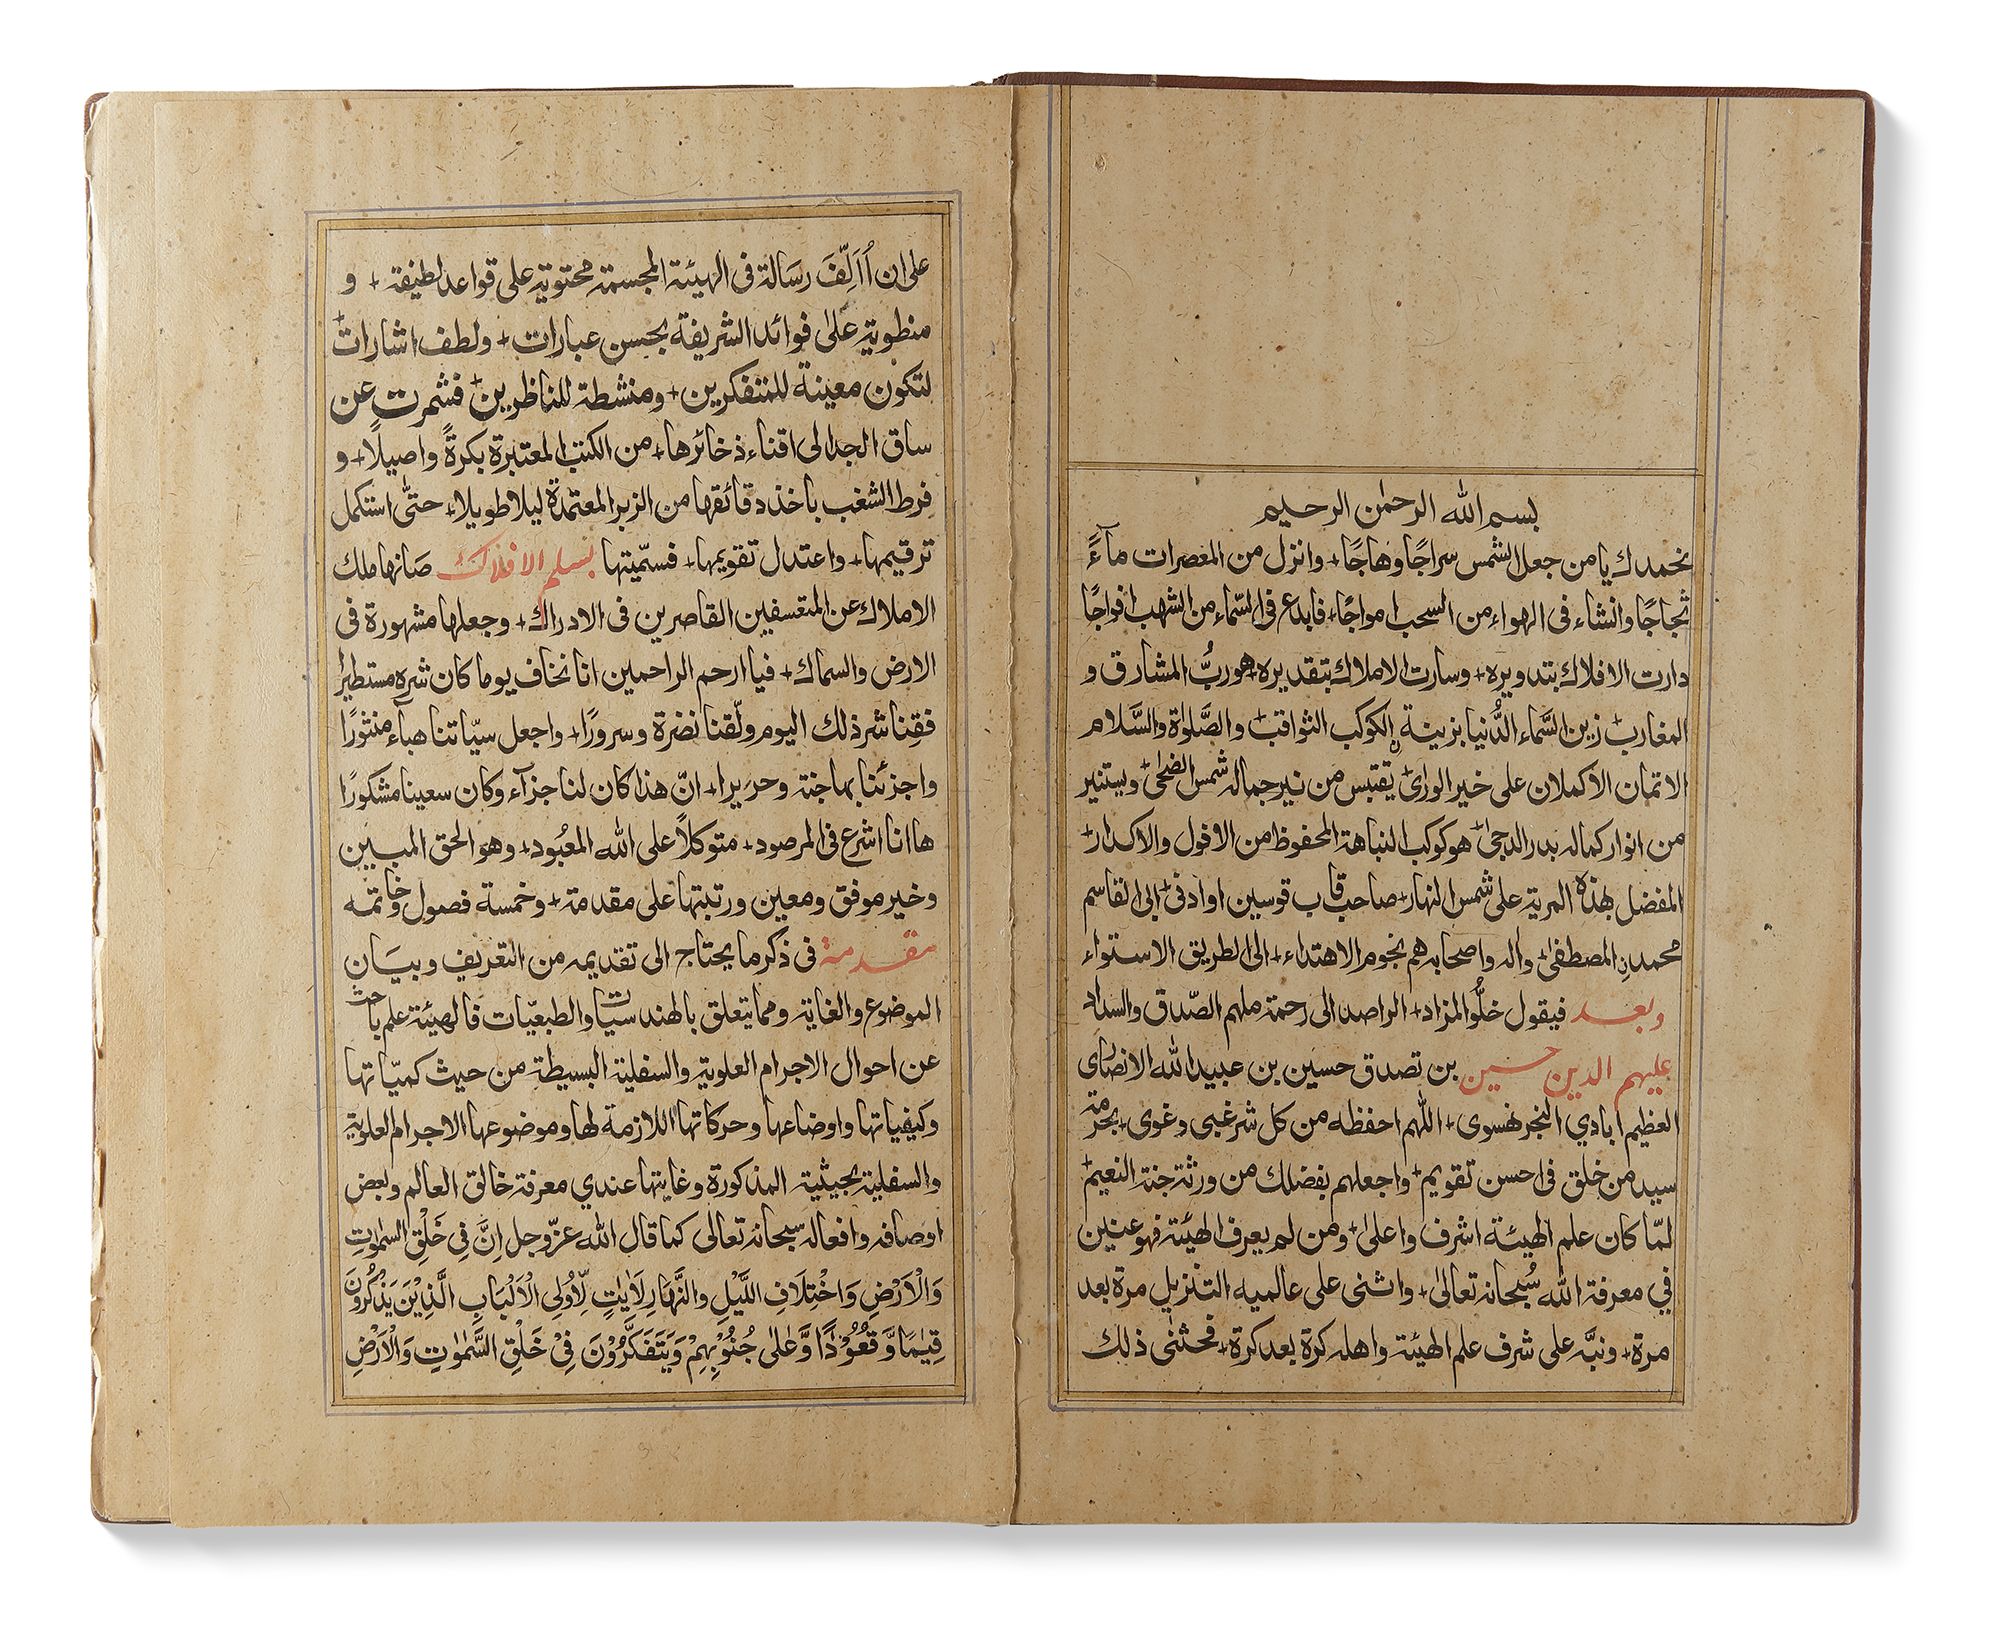 بسم الله الرحمٰن الرحيم
نحمدك يا من جعل الشمس سراجًا وهاجًا + وانزل من المعصرات مآءً
ثجاجًا وانشاء فى الهواء من السحب امواجًا + فابدع فى السّماء من الشهب افواجًا
دارت الافلاك بتدويره + وسارت الاملاك بتقديره + هو ربُّ المشارق و
المغارب + زين السَّماء الدُّنيا بزينة الكوكب الثواقب + والصَّلوٰة والسَّلام
الاتمان الاكملان على خير الورىٰ + يقتبس من نير جماله شمس الضحىٰ + ويستنير
من انوار كماله بدر الدجىٰ + هو كوكب النباهة المحفوظ من الافول والاكدار +
المفضل بهذه المرية على شمس النهار + صاحب قاب قوسين او ادنىٰ + ابى القاسم
محمدنِ المصطفىٰ + واله واصحابه هم نجوم الاهتداء + الى الطريق الاستواء
وبعد فيقول خلُّو المزاد + الراصد الى رحمة ملهم الصّدق والسداد
عليهم الدين حسين بن تصدق حسين بن عبيد الله الانصارى
العظيم ابادي النجرنهسوى + اللّٰهم احفظه من كل شر غبى وغوى + بحرمة
سيد من خلق فى احسن تقويم + واجعلهم بفضلك من ورثة جنة النعيم +
لمّا كان علم الهيئة اشرف واعلىٰ + ومن لم يعرف الهيئة فهو عنين
في معرفة الله سُبحانه تعالىٰ + واثنى على عالميه التنزيل مرة بعد
مرة + ونبَّه على شرف علم الهيئة واهله كرة بعد كرة + فحثنى ذلك
على ان اُالِّفَ رسَالة فى الهيئة المجسمة محتوية على قواعد لطيفة + و
منطوية علىٰ فوائد الشريفة بحسن عبارات + ولطف اشارات +
لتكون معينة للمتفكرين + ومنشطة للناظرين + فشمرت عن
ساق الجد الى اقناء ذخائرها + من الكتب المعتبرة بكرةً واصيلاً + و
فرط الشغب باخذ دقائقها من الزبر المعتمدة ليلا طويلاء + حتّٰى استكمل
ترقيمها + واعتدل تقويمها + فسمّيتها بسلم الافلاك صَانها ملك
الاملاك عن المتعسفين القاصرين فى الادراك + وجعلها مشهورة فى
الارض والسماك + فيا ارحم الراحمين انا نخاف يوما كان شره مستطيرا
فقِنا شر ذلك اليوم ولّقنا نضرة وسرورًا + واجعل سيّاتنا هباء منثورًا
واجزئنا بها جنة وحريرا + انّ هذا كان لنا جزآء وكان سعينا مشكورًا
ها انا اشرع فى المرصود + متوكلاً على الله المعُبود + وهو الحق المبين
وخير موفق ومعين ورتبتها على مقدمة + وخمسة فصول وخاتمه
مقدمة فى ذكر ما يحتاج الى تقديمه من التعريف وبيان
الموضوع والغاية ومما يتعلق بالهندسيّات والطبعيّات فالهيئة علم باحث
عن احوال الاجرام العلوية والسفلية البسيطة من حيث كميّاتها
وكيفياتها واوضاعها وحركاتها اللازمة لها وموضوعها الاجرام العلوية
والسفلية بحيثية المذكورة وغايتها عندي معرفة خالق العالم وبعض
اوصافه وافعاله سبحانه تعالى كما قال الله عزّ وجل اِنَّ فِى خَلْقِ السمٰوٰتِ
وَالْاَرْضِ وَاخْتِلَافِ اللَّيْلِ والنَّهَارِ لَاٰيٰتٍ لِّاُولِى الْاَلْبَابِ الَّذِيْنَ يَذْكُرُونَ
قِيَامًا وَّقُعُوْدًا وَّعَلٰى جُنُوْبِهِمْ وَيَتَفَكَّرُوْنَ فِىْ خَلْقِ السَّمٰوٰتِ وَالْاَرْضِ